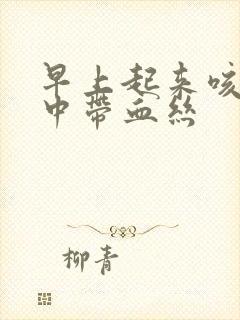 早上起来咳
中带血丝
柳青